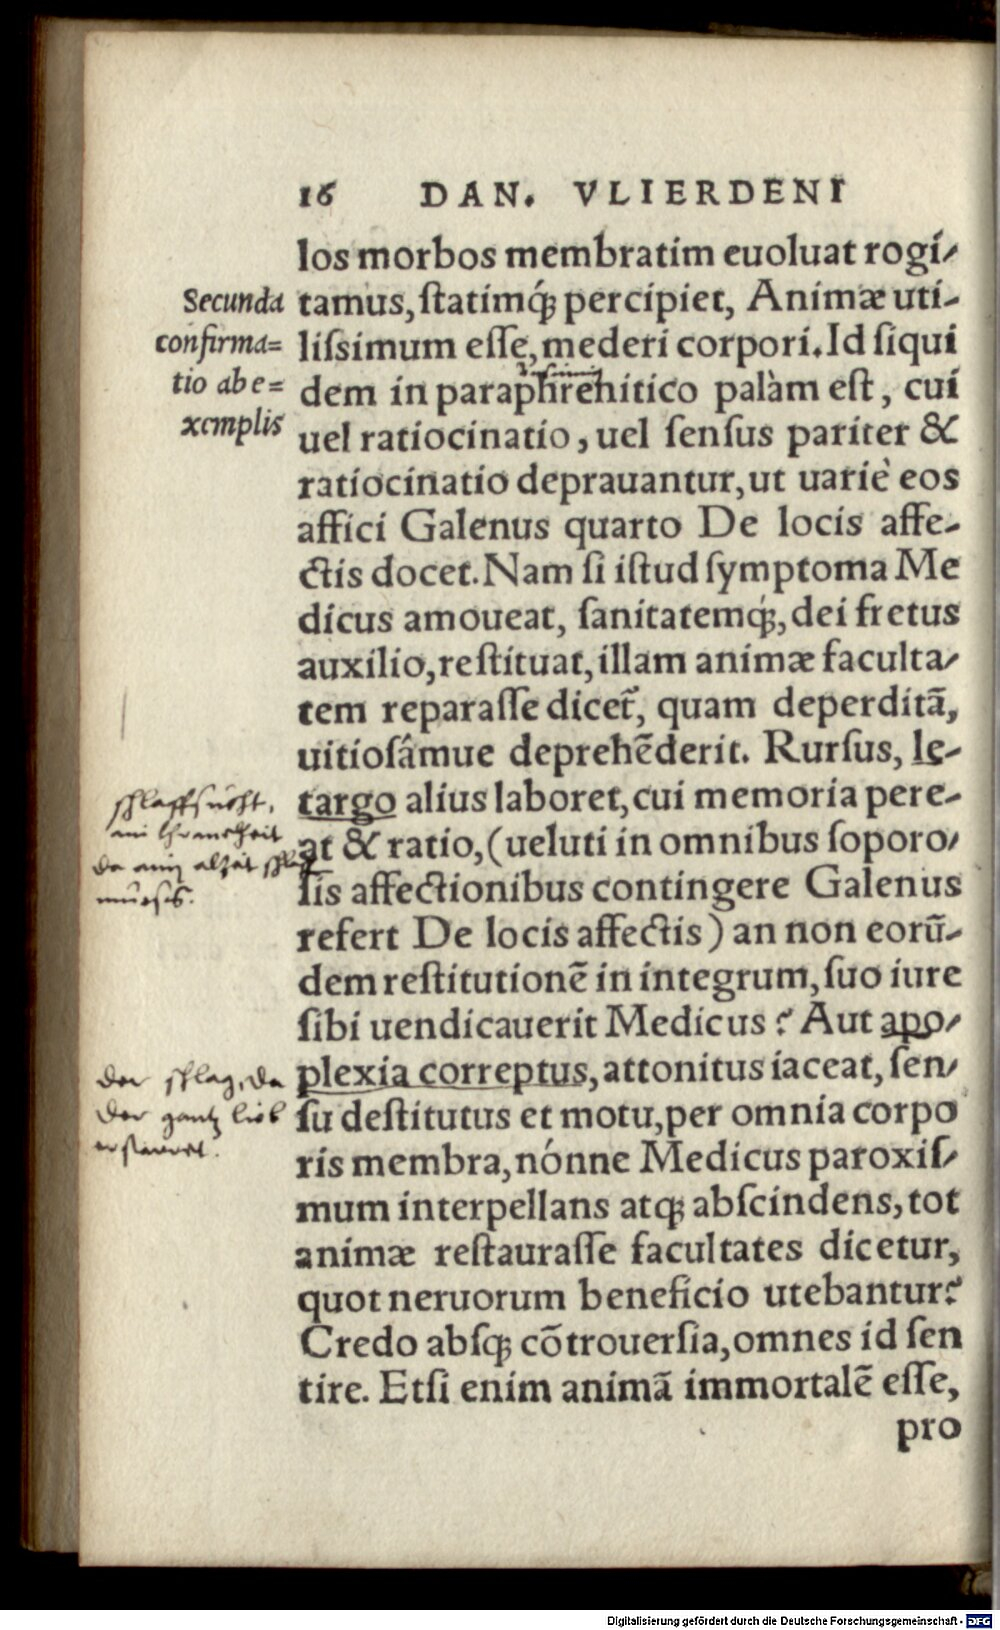 16 DAN. VLIERDENI
los morbos membratim euoluat rogi/
tamus, ſtatimq́; percipiet, Animæ uti-
liſsimum eſſe, mederi corpori. Id ſiqui
dem in paraphrenitico palàm eſt, cui
uel ratiocinatio, uel ſenſus pariter &
ratiocinatio deprauantur, ut uariè eos
affici Galenus quarto De locis affe-
ctis docet. Nam ſi iſtud ſymptoma Me
dicus amoueat, ſanitatemq́;, dei fretus
auxilio, reſtituat, illam animæ faculta/
tem reparaſſe dicet᷑, quam deperditã,
uitioſâmue deprehẽderit. Rurſus, le-
targo alius laboret, cui memoria pere-
at & ratio, (ueluti in omnibus ſoporo/
ſis affectionibus contingere Galenus
refert De locis affectis) an non eorũ-
dem reſtitutionẽ in integrum, ſuo iure
ſibi uendicauerit Medicus? Aut apo/
plexia correptus, attonitus iaceat, ſen/
ſu deſtitutus et motu, per omnia corpo
ris membra, nónne Medicus paroxiſ/
mum interpellans atq; abſcindens, tot
animæ reſtauraſſe facultates dicetur,
quot neruorum beneficio utebantur?
Credo abſq; cõtrouerſia, omnes id ſen
tire. Etſi enim animã immortalẽ eſſe,
pro
Secunda
confirma=
tio ab e=
xemplis
ſchlaffſucht,
da
der ſchlag, da
der gantz lieb
erſtarret.
Digitalisierung gefördert durch die Deutsche Forschungsgemeinschaft - DFG